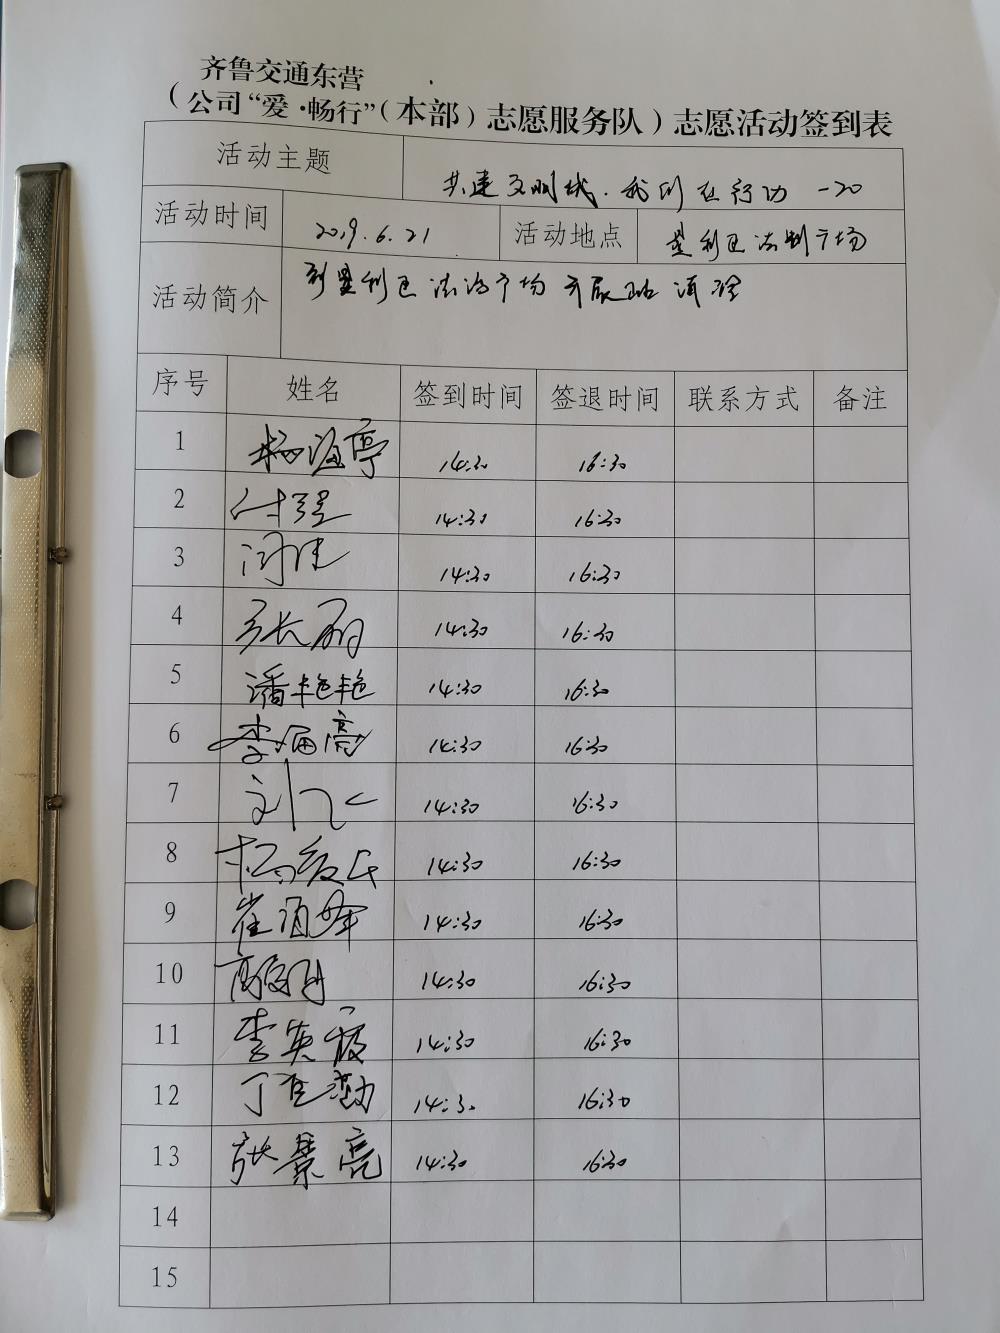 齐鲁交通东营
（公司“爱·畅行”（本部）志愿服务队）志愿活动签到表
活动主题 共建文明城.我们在行动 -20
活动时间 2019.6.21 活动地点 垦利区法制广场
活动简介 到垦利区法治广场开展 清理
序号 姓名 签到时间 签退时间 联系方式 备注
1 杨海亭 14:30 16:30
2 付强 14:30 16:30
3 闫佳 14:30 16:30
4 张丽 14:30 16:30
5 潘艳艳 14:30 16:30
6 李 亮 14:30 16:30
7 刘飞 14:30 16:30
8 杨 14:30 16:30
9 崔 峰 14:30 16:30
10 14:30 16:30
11 李英霞 14:30 16:30
12 丁 14:30 16:30
13 张景亮 14:30 16:30
14
15